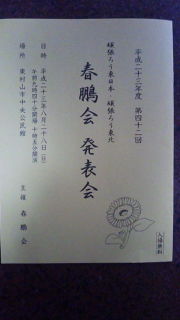 平成二十三年度 第四十二回
頑張ろう東日本 頑張ろう東北
春鵬会 発表会
日時 平成二十三年八月二十八日(日)
午前九時四十分開場 十時五分開演
場所 東村山市中央公民館
主催 春鵬会
入場無料